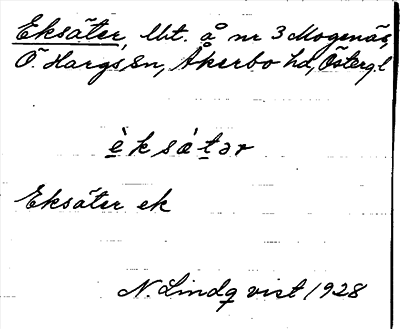 Eksäter, lht. å nr 3 Mogenäs,
Ö. Hargs sn, Åkerbo hd, Östergl
è k s ä́ t ə r
Eksäter ek
N. Lindqvist 1928